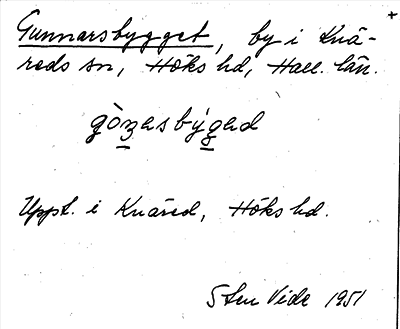 +
Gunnarsbygget, by i Knä-
reds sn, Höks hd, Hall. län.
gòn̲asbýg̲ad
Uppt. i Knäred, Höks hd.
Sten Vide 1951